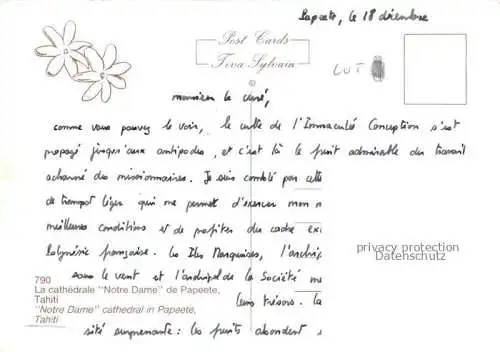 Papeete, le 18 décembre
Post Cards
Teva Sylvain
LOT
Monsieur le curé,
comme vous pouvez le voir, le culte de l'Immaculée Conception s'est
propagé jusqu'aux antipodes, et c'est là le fruit admirable du travail
acharné des missionnaires. Je suis comblé par cette
de transport léger qui me permet d'exercer mon m
meilleures conditions et de profiter du cadre ex
Polynésie française. Les Iles Marquises, l'archip
privacy protection
Datenschutz
sous le vent et l'archipel de la Société
790
La cathédrale "Notre Dame" de Papeete,
Tahiti
leurs trésors. La
"Notre Dame" cathedral in Papeete,
Tahiti
sité surprenante : les fruits abondent